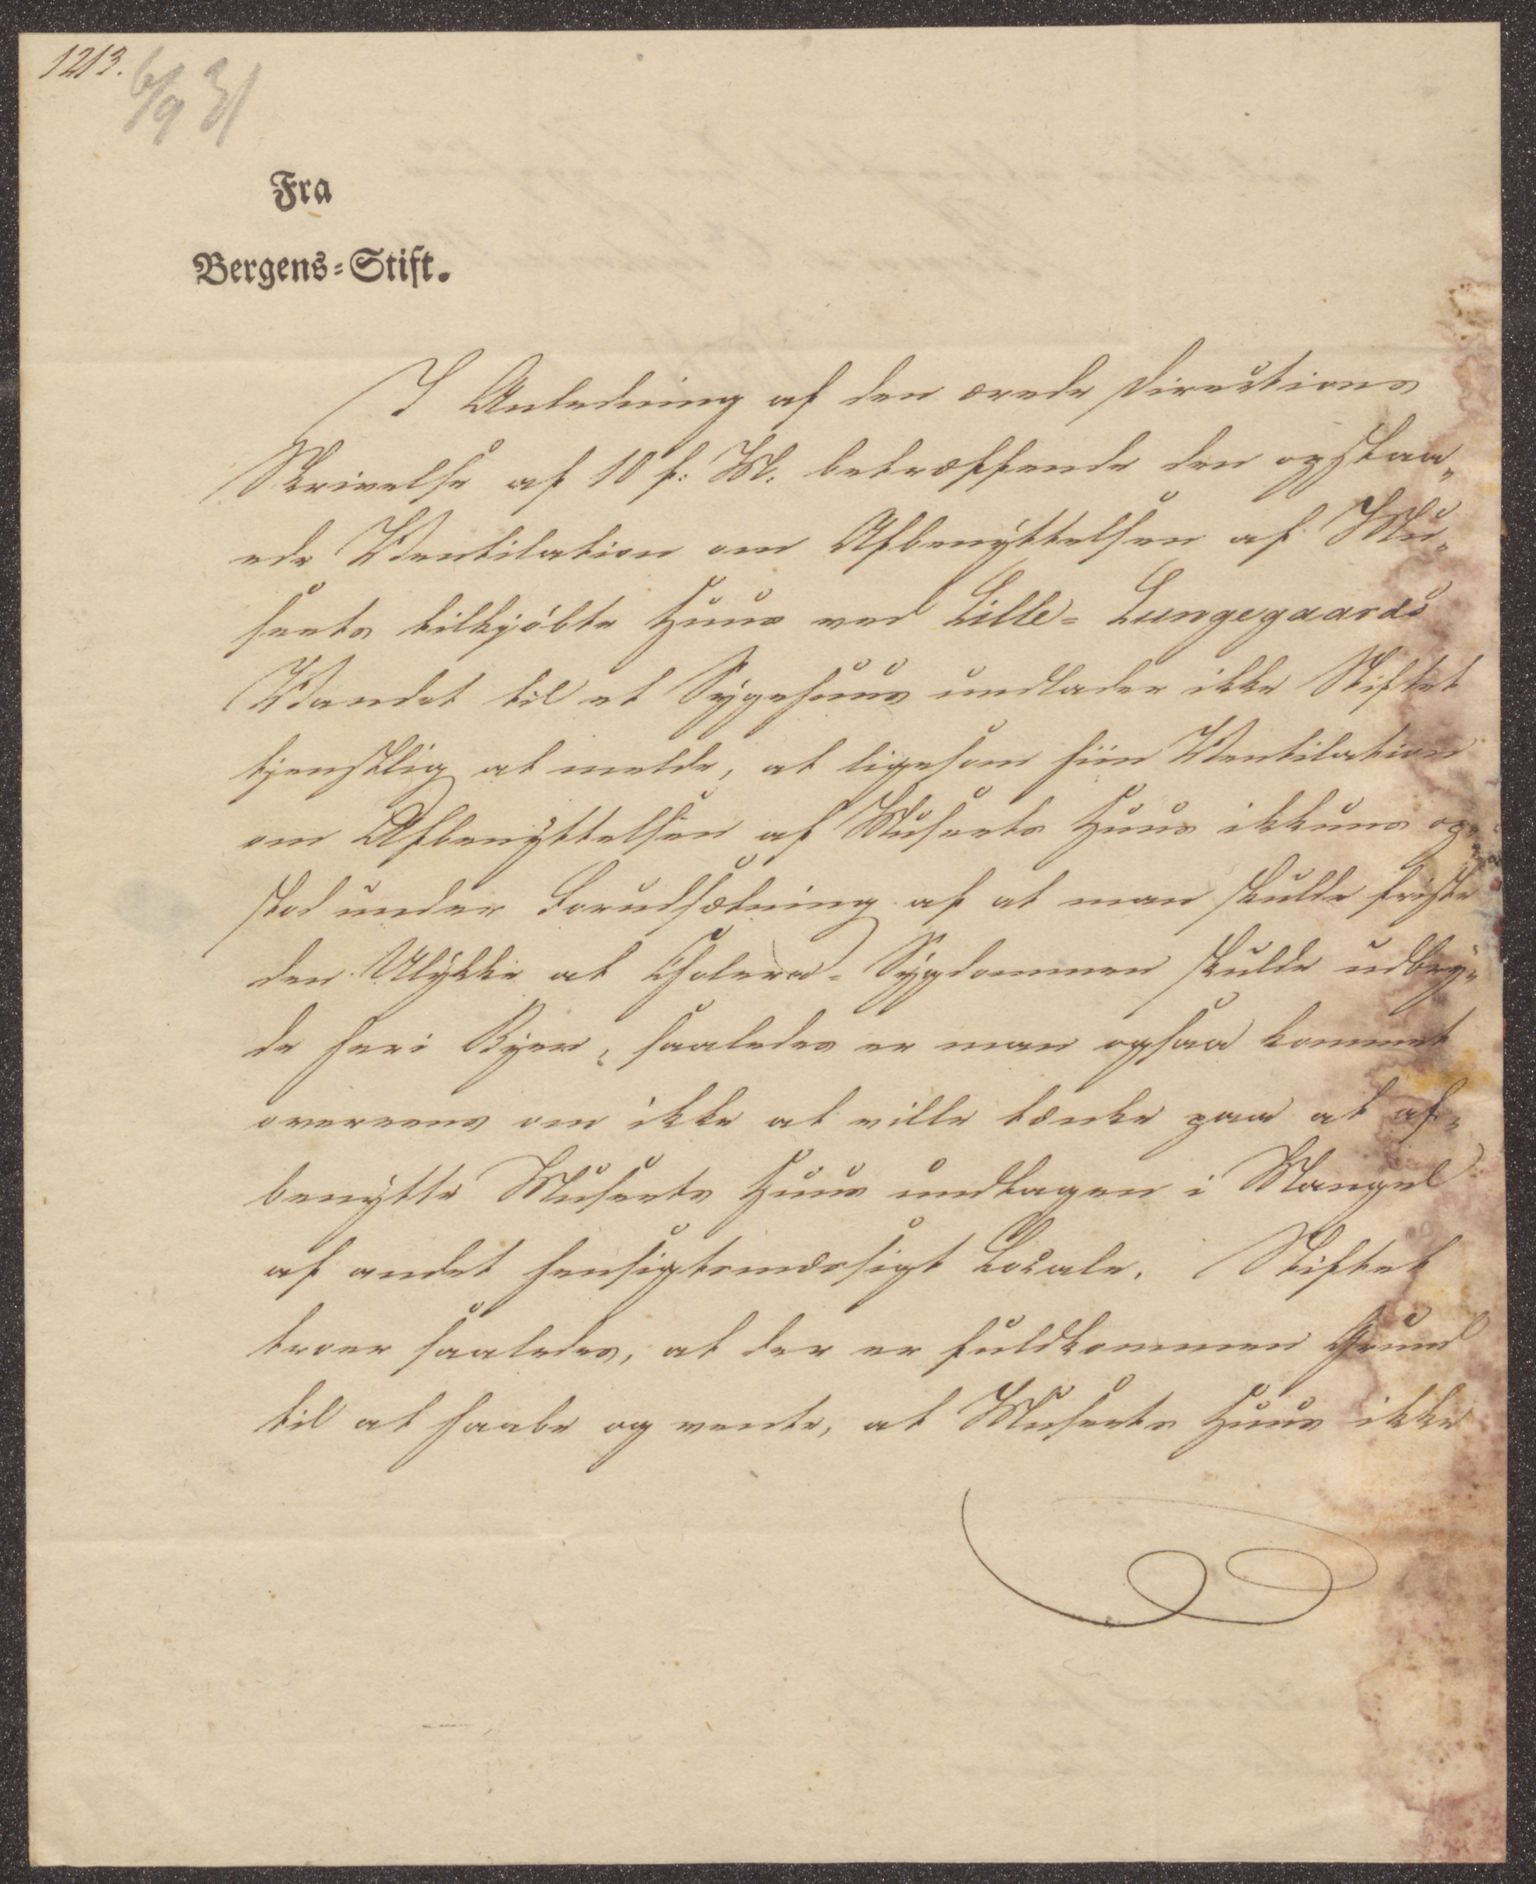 1213.
6/9 31
Fra
Bergens=Stift.
I Anledning af den ærede Directions
Skrivelse af 10 f: M. betræffende den opstaa„
ede Ventilation om Afbenyttelsen af Mu„
seets tilkjöbte Huus ved Lille= Lungegaards
Vandet til et Sygehuus undlader ikke Stiftet
tjenstlig at melde, at ligesom hiin Ventilation
om Afbenyttelsen af Museets Huus ikkuns op„
stod under Forudsætning af at man skulde friste
den Ulykke at Cholera=Sygdommen skulde udbry„
de her i Byen, saaledes er man ogsaa kommet
overeens om ikke at ville tænke paa at af„
benytte Museets Huus undtagen i Mangel
af andet hensigtsmæssigt Locale. Stiftet
troer saaledes, at der er fuldkommen Grund
til at haabe og vente, at Museets Huus ikke